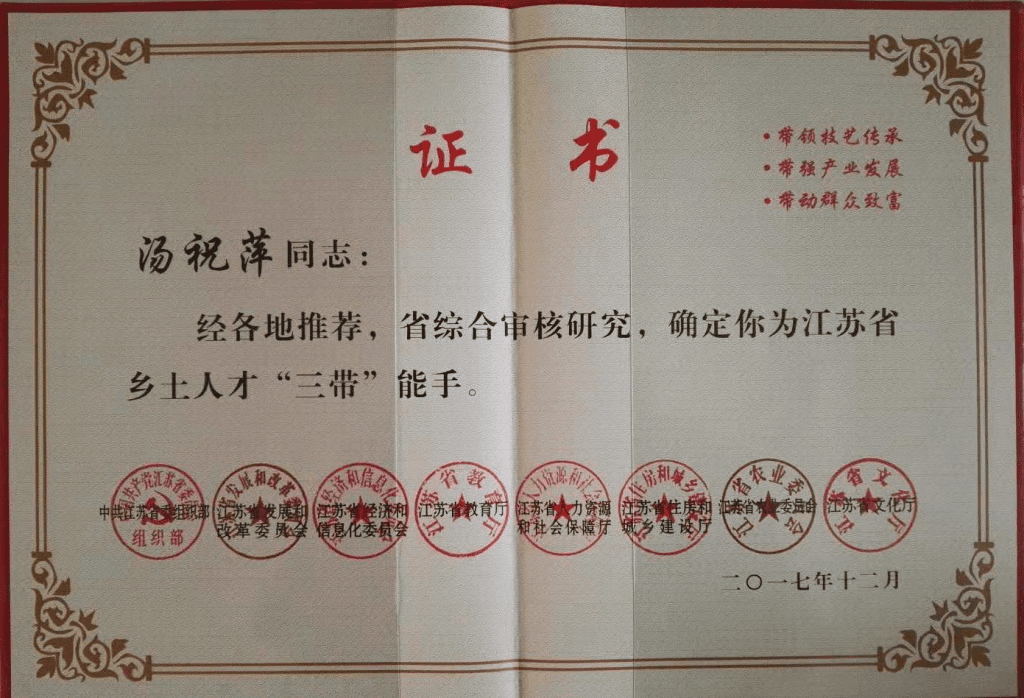 证书
·带领技艺传承
·带强产业发展
·带动群众致富
汤祝萍同志：
经各地推荐，省综合审核研究，确定你为江苏省
乡土人才“三带”能手。
中共江苏省委组织部
江苏省发展和
改革委员会
江苏省经济和
信息化委员会
江苏省教育厅
江苏省人力资源
和社会保障厅
江苏省住房和
城乡建设厅
江苏省农业委员会
江苏省文化厅
组织部
江苏省教育厅
江苏省文化厅
二〇一七年十二月